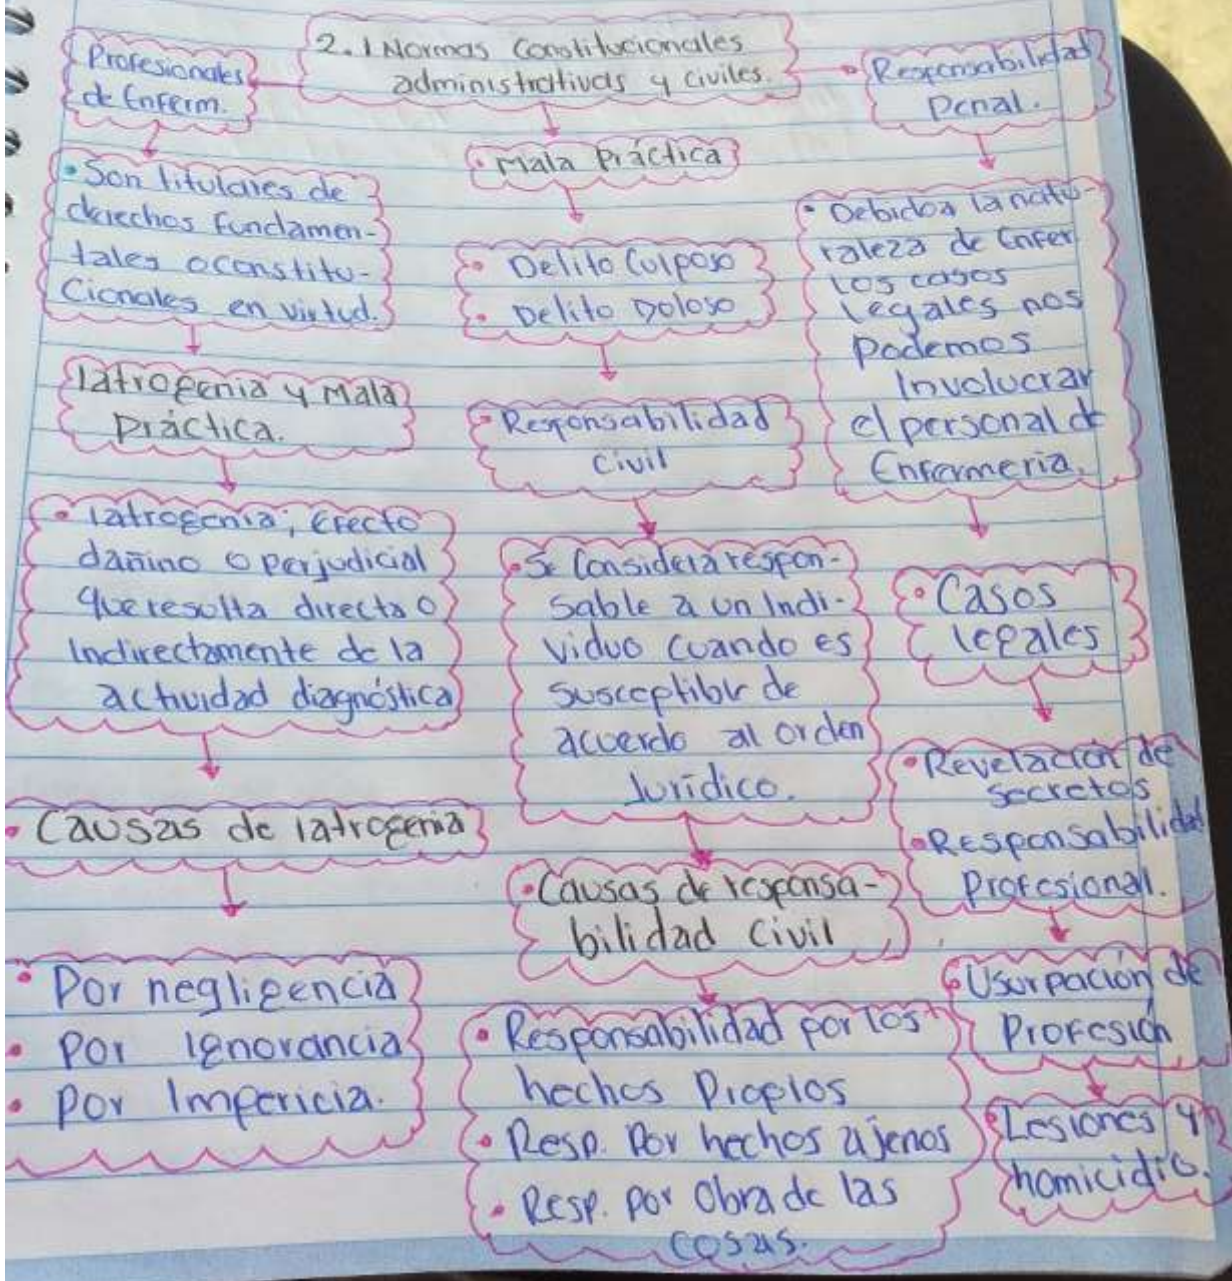 2.1 Normas Constitucionales
administrativas y civiles.
Profesionales
de Enferm.
• Son titulares de
derechos fundamen-
tales o constitu-
cionales en virtud.
Iatrogenia y Mala
Práctica.
• Iatrogenia; Efecto
dañino o perjudicial
que resulta directa o
Indirectamente de la
actividad diagnóstica
• Causas de iatrogenia
• Por negligencia
• Por Ignorancia
• Por Impericia.
• Mala Práctica
• Delito Culposo
• Delito Doloso
• Responsabilidad
Civil
• Se Considera respon-
sable a un Indi-
viduo cuando es
susceptible de
acuerdo al orden
Jurídico.
• Causas de responsa-
bilidad Civil
• Responsabilidad por los
hechos Propios
• Resp. Por hechos ajenos
• Resp. por Obra de las
cosas.
• Responsabilidad
Penal.
• Debidoa la natu-
raleza de Enfer
los casos
legales nos
Podemos
Involucrar
el personal de
Enfermeria.
• Casos
legales
• Revelación de
secretos
• Responsabilidad
Profesional.
• Usurpación de
Profesión
• Lesiones y
homicidio.